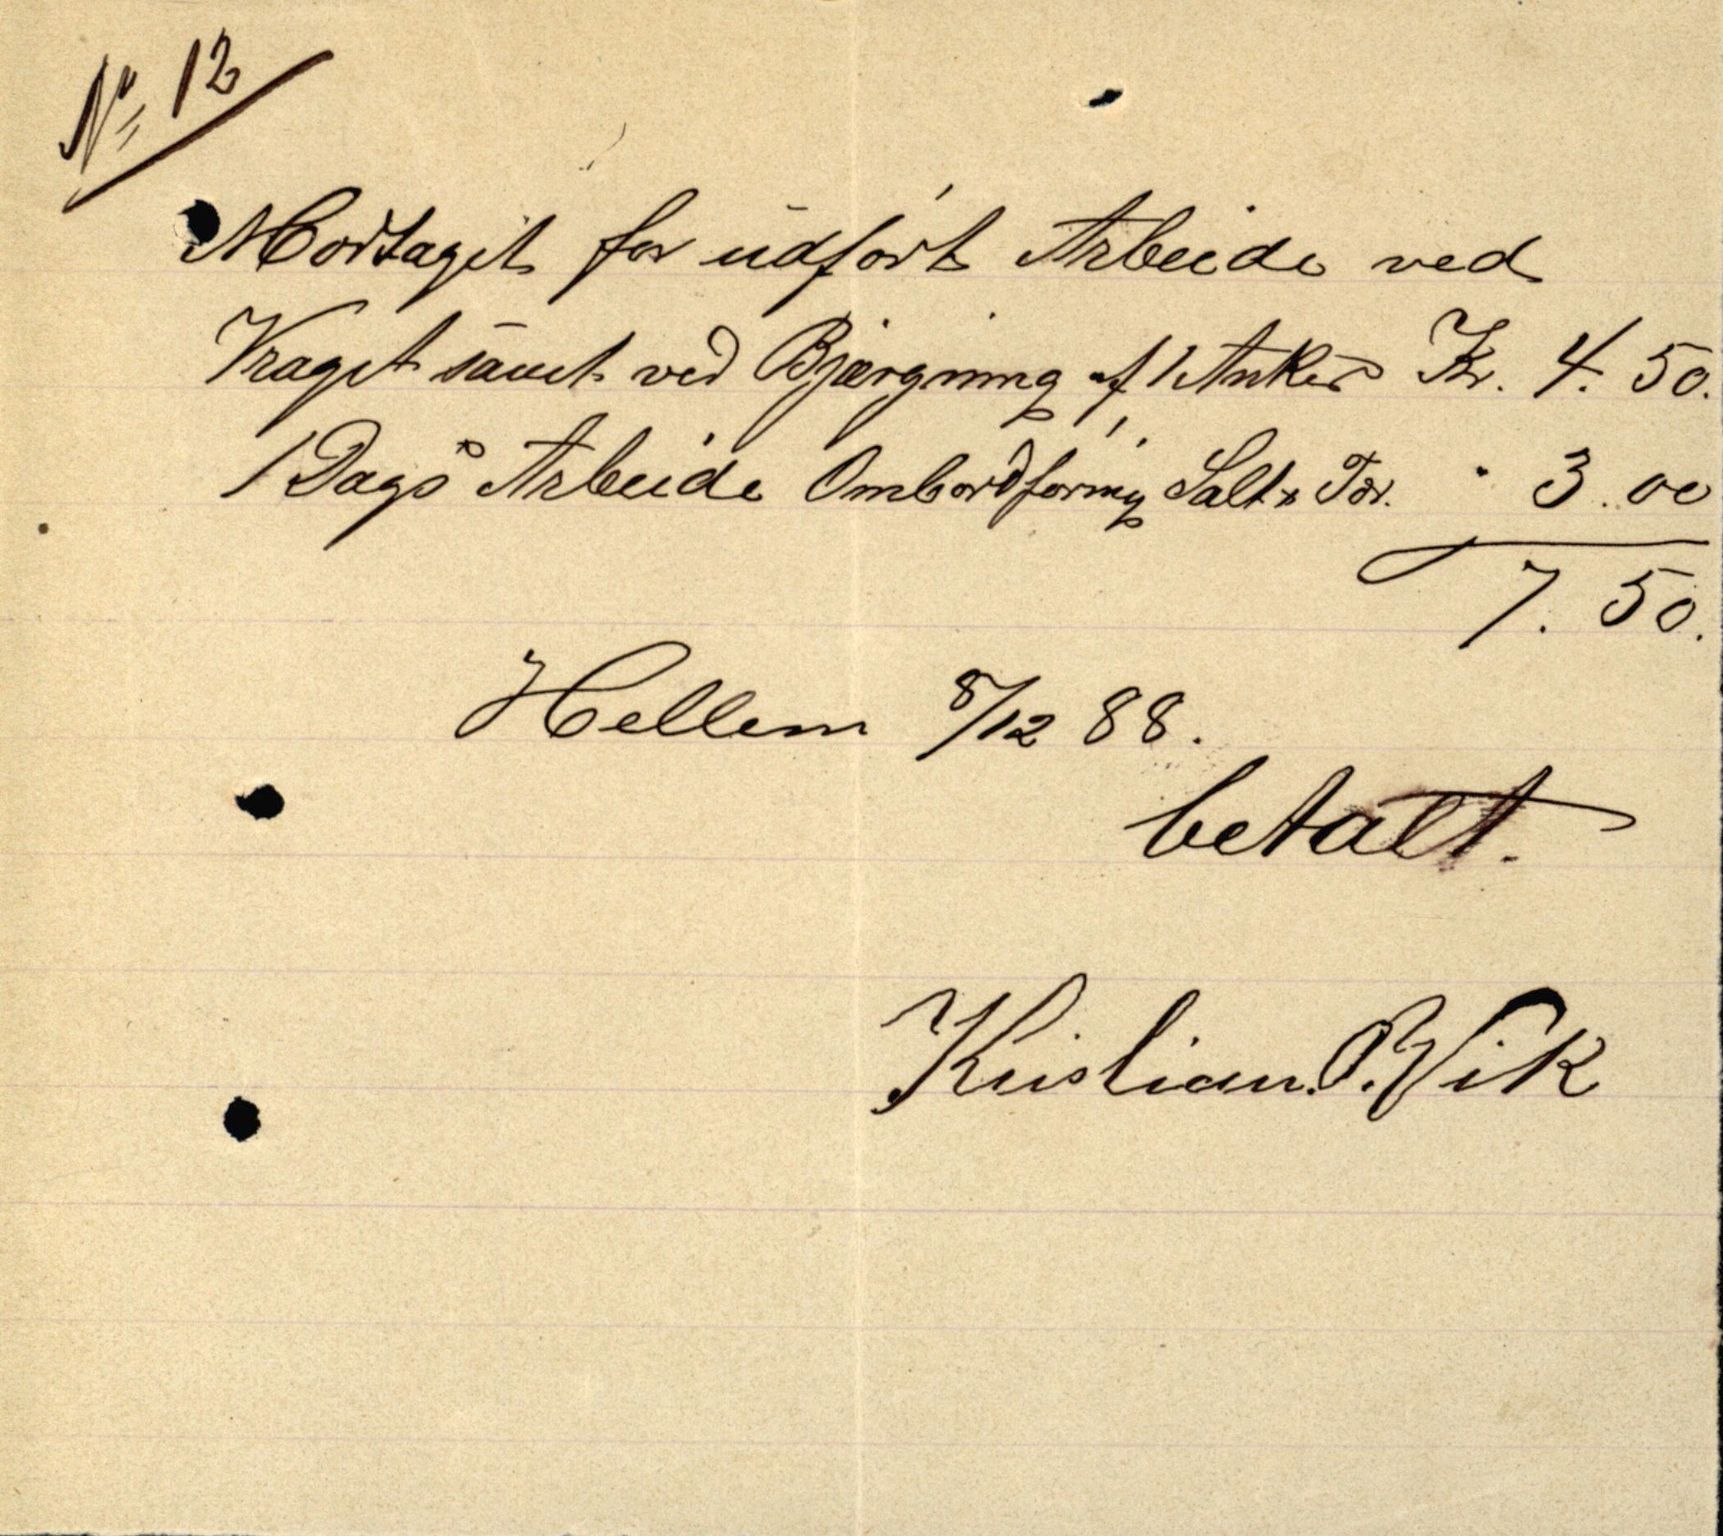 No 12
Modtaget for udført Arbeide ved
Vraget samt ved Bjærgning af 1 Anker Kr. 4. 50.
1 Dags Arbeide Ombordføring Salt &
" 3.00
7. 50.
Hellem 8/12 88.
betalt.
Kristian O. Vik